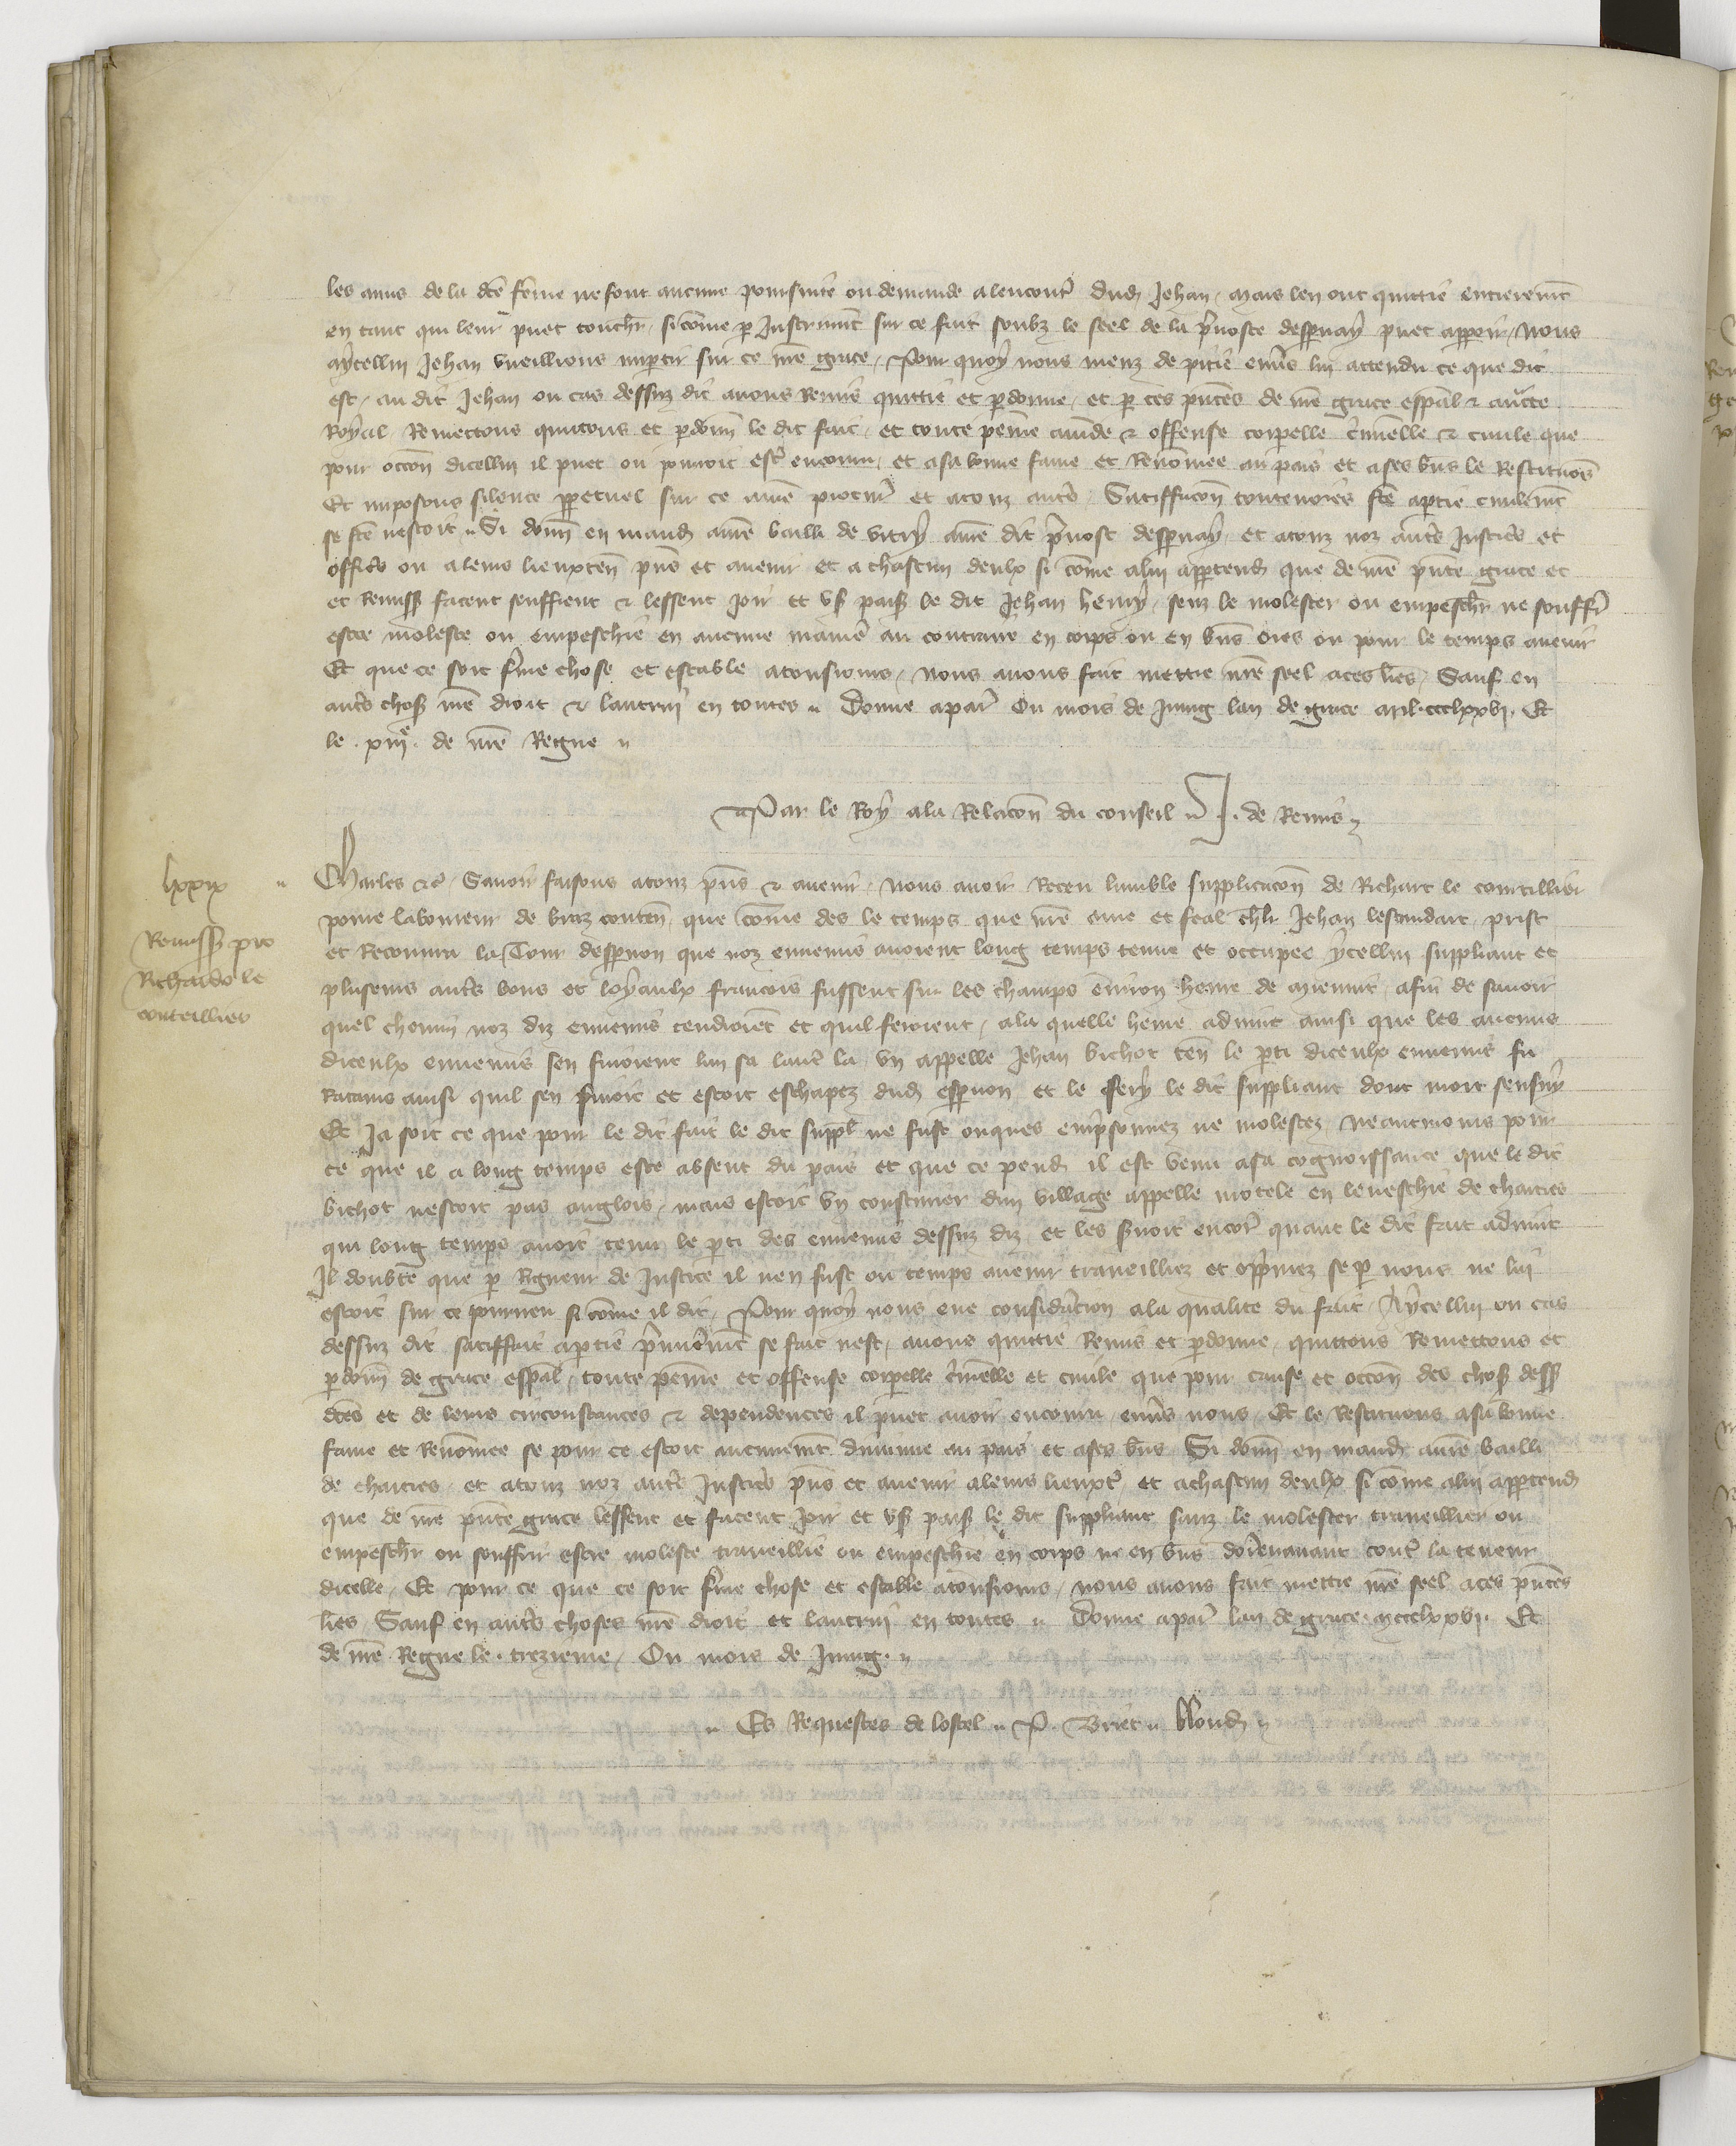 les amis de la dce fême ne font aucune poursuite ou demande alencont' dud Jehan, mais len ont quittié entieremt
en tant qui leur puet touchr, si côme p Instrumt sur ce fait soubz le seel de la p'uosté despnay puet apper, Nous
aycellui Jehan vueillions impertir sur ce nre grace, Pour quoy nous meuz de pitié enuers lui attendu ce que dit
est, au dit Jehan ou cas dessuz dit auons Remis quittié et pdonné, et p ces pntes de nre grace espal & aucte
Royal Remettons quittons et pdonn le dit fait, et toute peine amde & offense corpelle c'minelle & ciuile que
pour occon dicellui il puet ou pourroit est' encouru, et a sa bonne fame et Renômee au païs et a ses bns le Restituons
Et imposons silence ppetuel sur ce a nre procur' et a touz autres, Satiffacon toutesuoies fte a ptie ciuilemt
se fte nestoit Si donn en mand a nre bailli de vitry a nre dit p'uost despnay et a touz noz autres Justic's et
offic's ou a leurs lieuxten pns et auenir et a chascun deulx si côme a lui apptend que de nre pnte grace et
et Remiss facent seuffrent & lessent joir et vs paisib le dit Jehan henry, senz le molester ou empeschr ne souffr'
estre molesté ou empeschié en aucune maniere au contraire en corps ou en bns ores ou pour le temps auenir
Et que ce soit ferme chose et estable a tousiours, nous auons fait mettre nre seel a ces lres, Sauf en
autres chos nre droit & lautruy en toutes Donné a paris Ou mois de Juing lan de grace mil ccclxxvj. Et
le xiije de nre Regne
Par le Roy a la Relacon du conseil J. de Remis
lxxix
Remiss pro
Richardo le
coutillier
Charles &c Sauoir faisons a touz pns & auenir, Nous auoir Receu lumble supplicacon de Richart le coutillier
poure laboureur de braz conten, que côme des le temps que nre amé et feal chlr Jehan lestandart prist
et Recouura la Tour despnon que noz ennemis auoient long temps tenue et occupee ycellui suppliant et
pluseurs autres bons et loyaulx francois fussent sur les champs enuiron heure de mienuit, afin de sauoir
quel chemin noz diz ennemis tendroiet et quil feroient, a la quelle heure aduint ainsi que les aucuns
diceulx ennemis sen fuioient lun sa laut' la vn appellé Jehan bichot ten le pti diceulx ennemis fu
Rataint ainsi quil sen fuioit et estoit eschapez dud espnon et le fery le dit suppliant dont mort sensuy
Et Ja soit ce que pour le dit fait le dit suppl ne fust onques emp'sonnez ne molestez Neantmoins pour
ce que il a long temps esté absent du païs et que ce pend il est venu a sa cognoissance que le dit
bichot nestoit pas anglois, mais estoit vn cousturier dun village appellé motele en leueschié de chartres
qui long temps auoit tenu le pti des ennemis dessuz diz et les suoit encor' quant le dit fait aduint
Il doubte que p Rigueur de Justice il nen fust ou temps auenir traueilliez et opp'mez se p nous ne lui
estoit sur ce pourueu si côme il dit, Pour quoy nous eue consideracion a la qualité du fait Aycellui ou cas
dessuz dit satiffait a ptie p'mieremt se fait nest, auons quittié Remis et pdonné, quittons Remettons et
pdonn de grace espal, toute peine et offense corpelle c'minelle et ciuile que pour cause et occon des chos dess
dces et de leurs circonstances & dependences il puet auoir encouru enuers nous Et le Restituons a sa bonne
fame et Renômee se pour ce estoit aucunemt diminué au païs et a ses bns Si donn en mand a nre bailli
de chartres et a touz noz autres Justic's pns et auenir a leurs lieuxt' et a chascun deulx si côme a lui apptend
que de nre pnte grace lessent et facent joir et vs paisib le dit suppliant sanz le molester traueillier ou
empeschr ou souffrir estre molesté traueillié ou empeschié en corps ne en bns doresenauant cont' la teneur
dicelle, Et pour ce que ce soit ferme chose et estable a tousiours, nous auons fait mettre nre seel a ces pntes
lres Sauf en autres choses nre droit et lautrui en toutes Donné a paris lan de grace mccclxxvj. Et
de nre Regne le trezieme, Ou mois de Juing.
Es Requestes de lostel P. Briet Blond